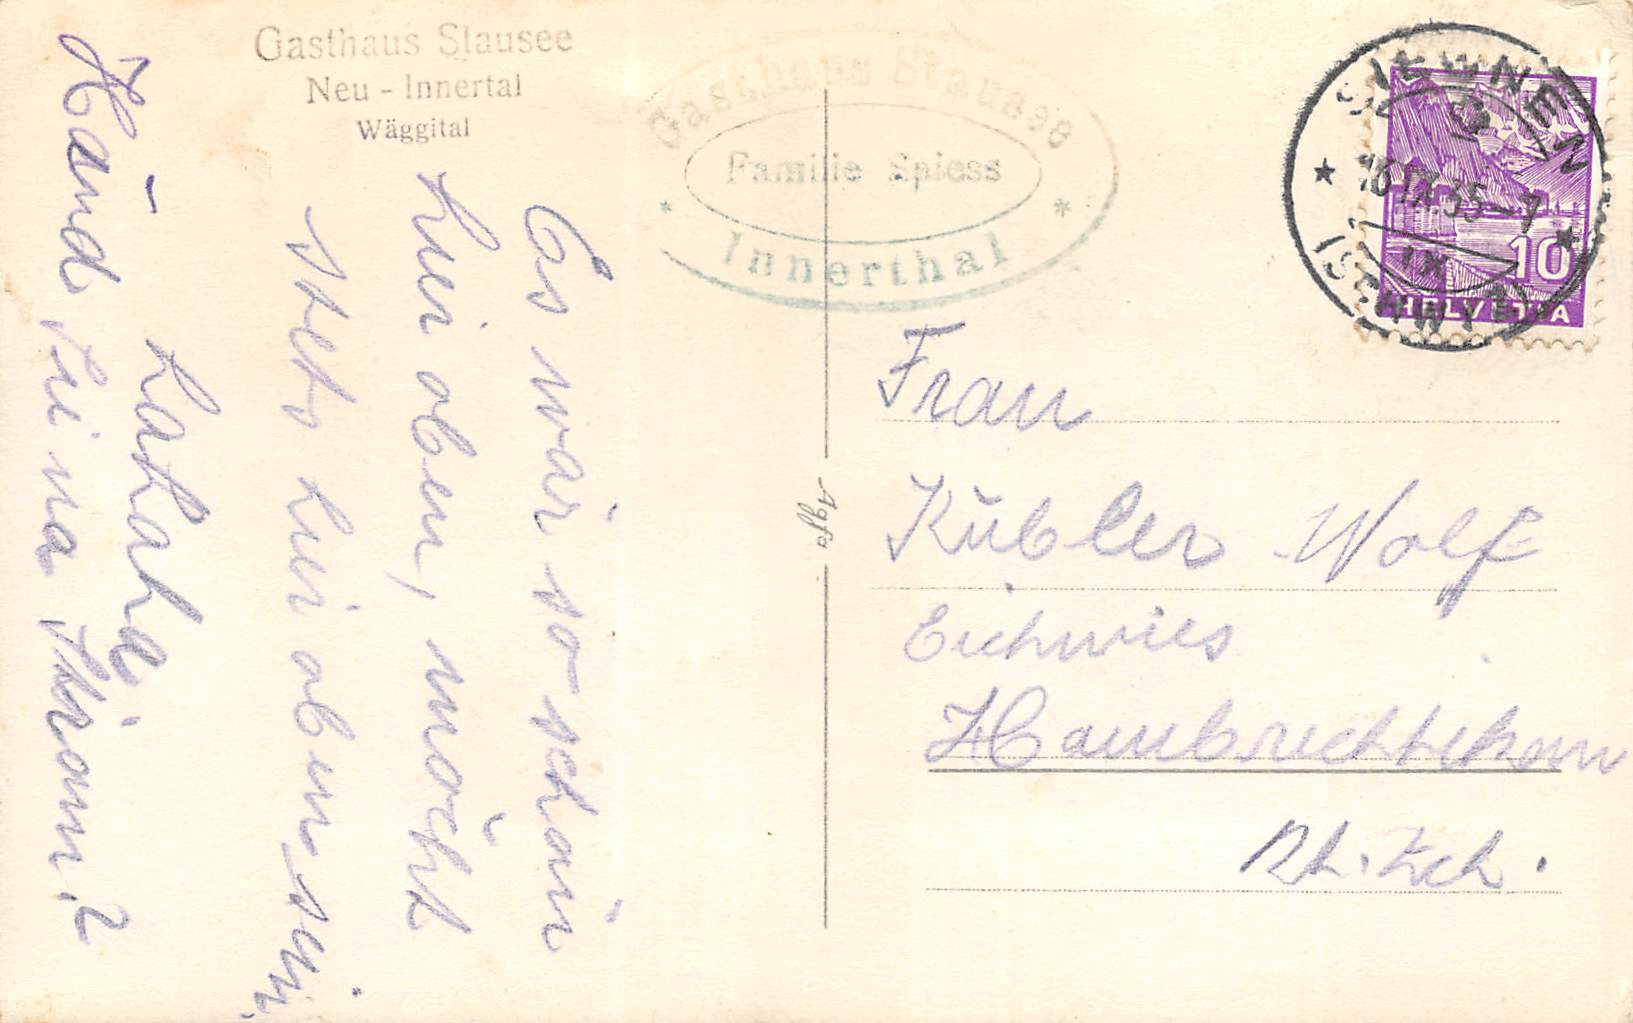 Gasthaus Stausee
Neu - Innertal
Wäggital
Gasthaus Stausee
Familie Spiess
* Innerthal *
SIEBNEN
16.IX.35-7
IX
(SCHWYZ)
10
HELVETIA
Es wär so schön
hir oben, möcht
stets hir oben sein
Händ sie na
Agfa
Frau
Kübler Wolf
Eichwies
Hombrechtikon
Kt. Zch.